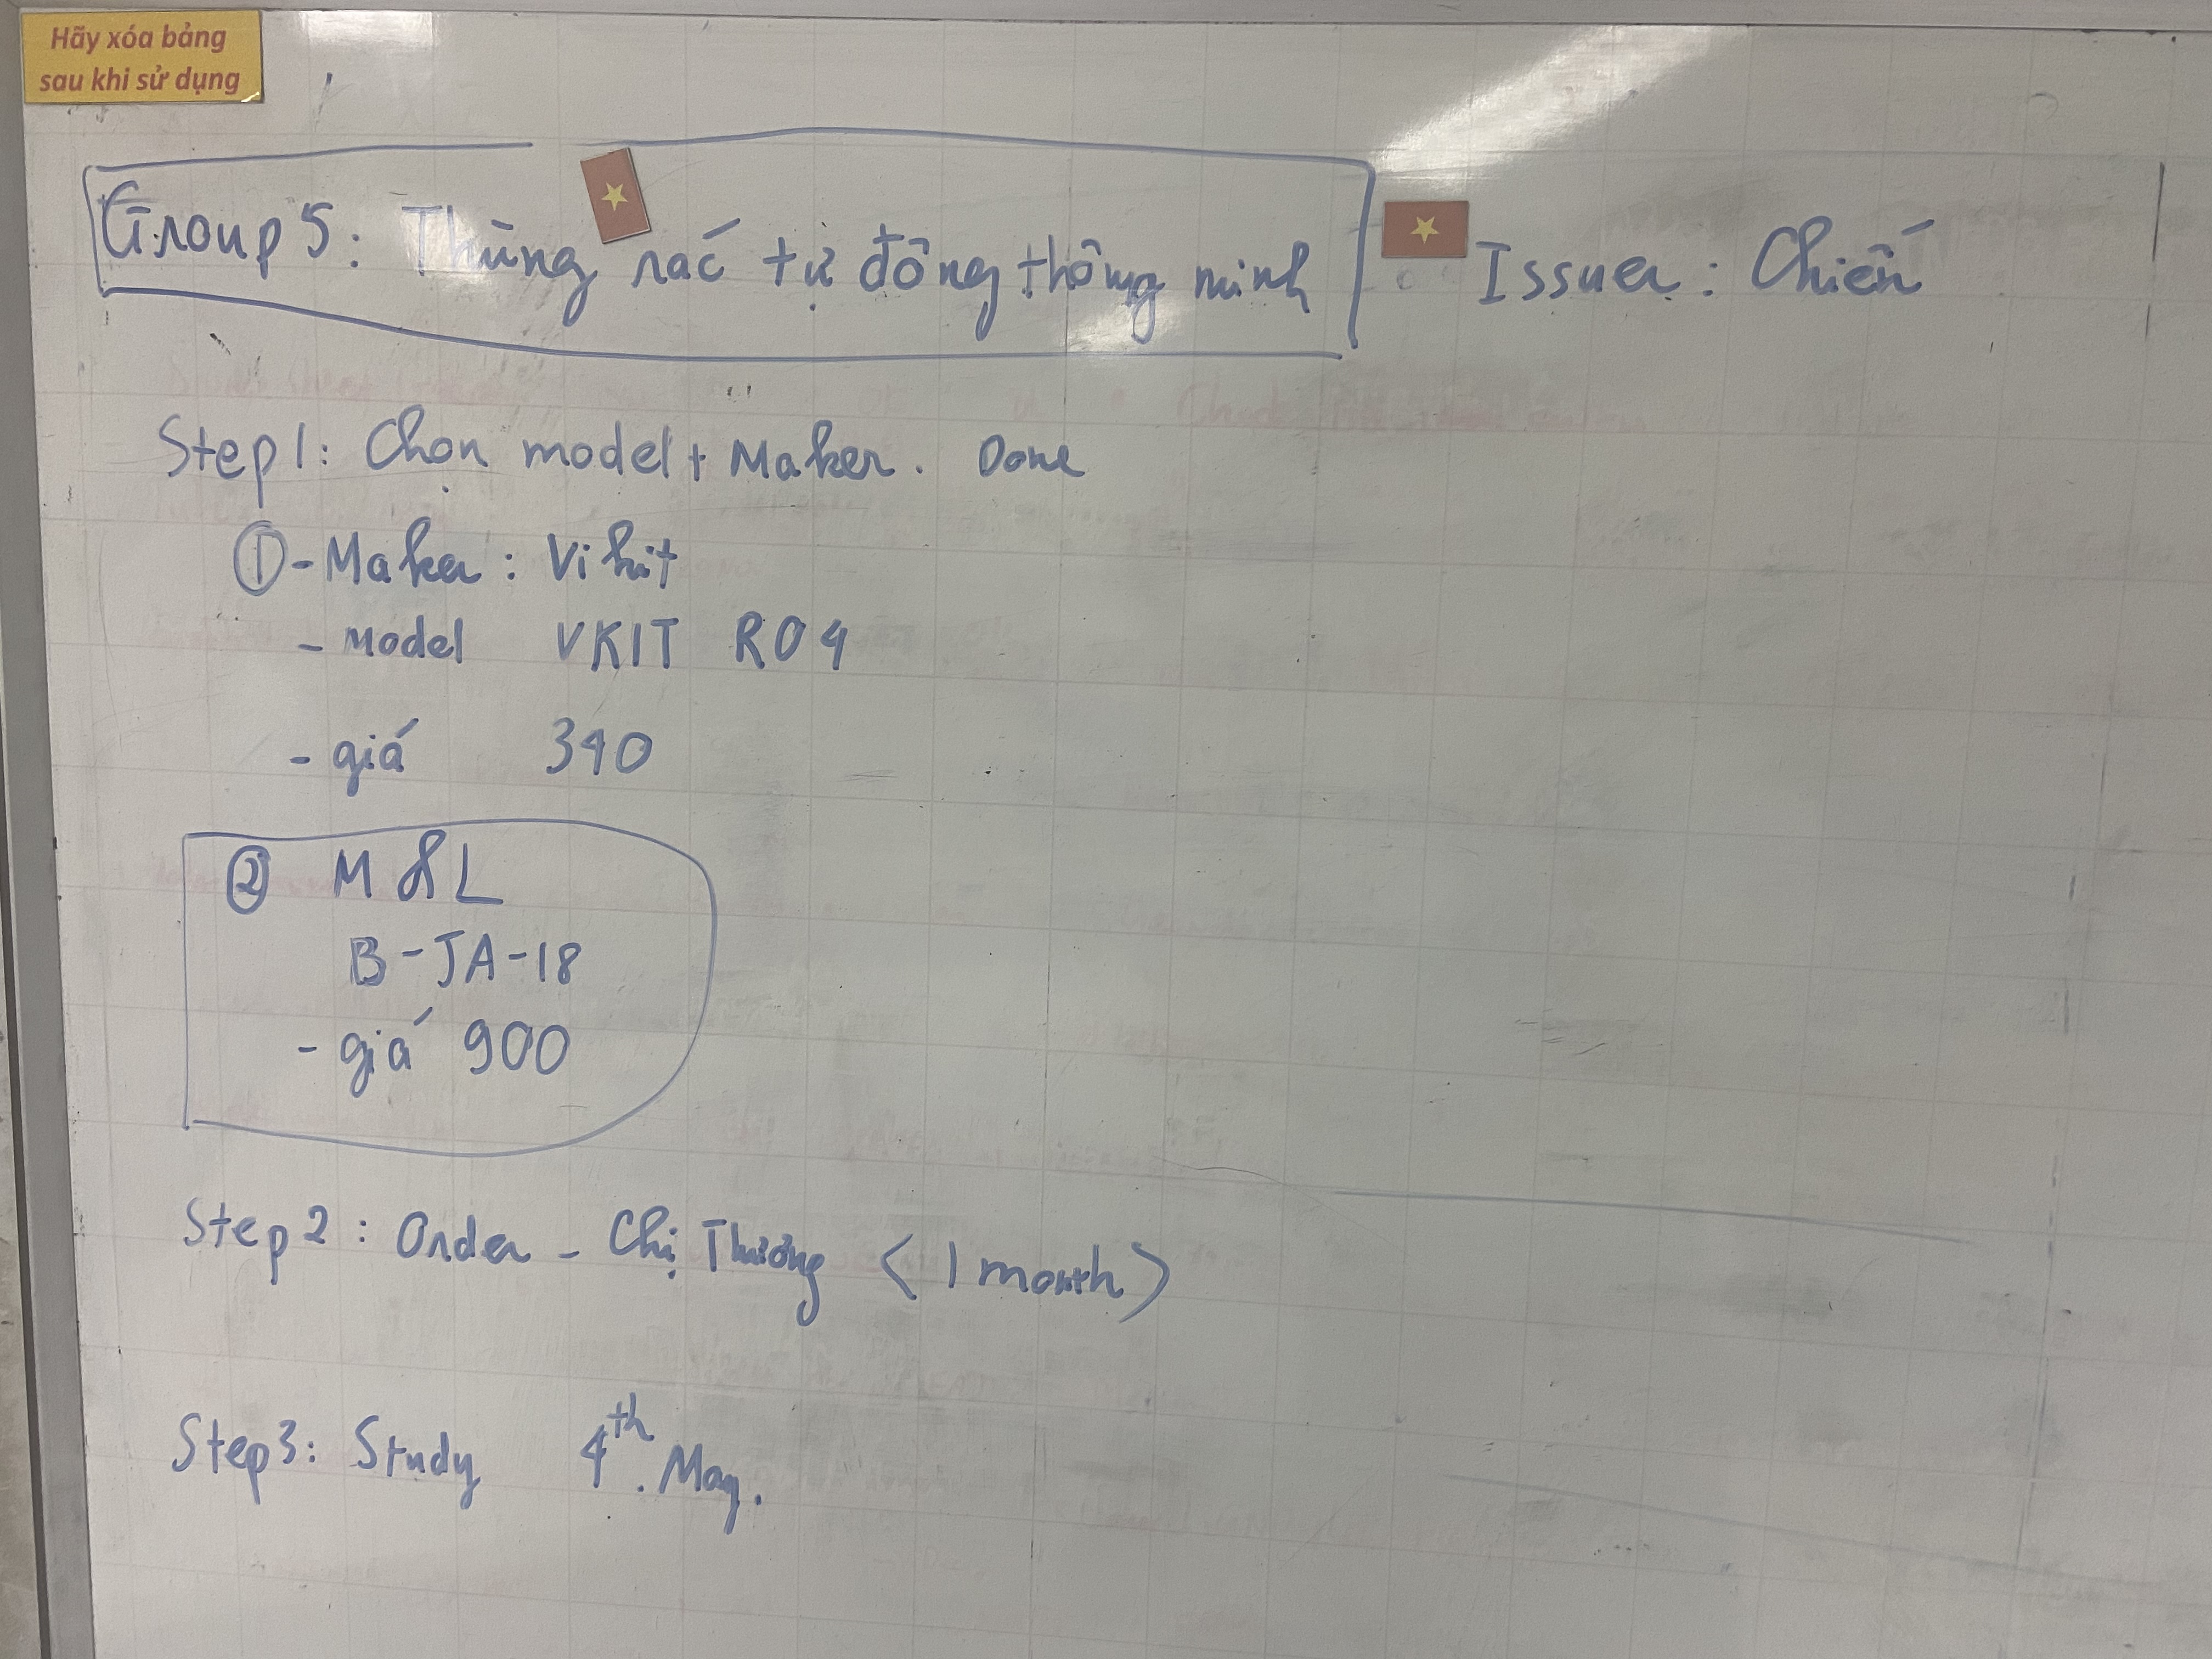 Hãy xóa bảng
sau khi sử dụng
Group 5: Thùng rác tự động thông minh
Issuer: Chiến
Step 1: Chọn model + Maker. Done
① - Maker: Vikit
- Model VKIT R04
- giá 340
② M&L
B-JA-18
- giá 900
Step 2: Order - Chị Thương <1 month>
Step 3: Study 4th. May.